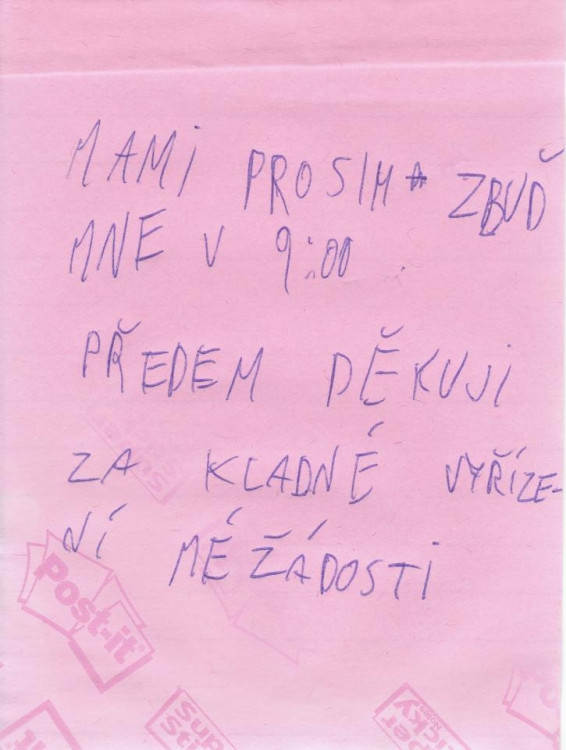 MAMi PROSIM ZBUĎ
MNE V 9:00.
PŘEDEM DĚKUJI
ZA KLADNÉ VYŘÍZE-
NÍ MÉ ŽÁDOSTi
Super
Sticky
Post-it
Post-it
Super
Sticky